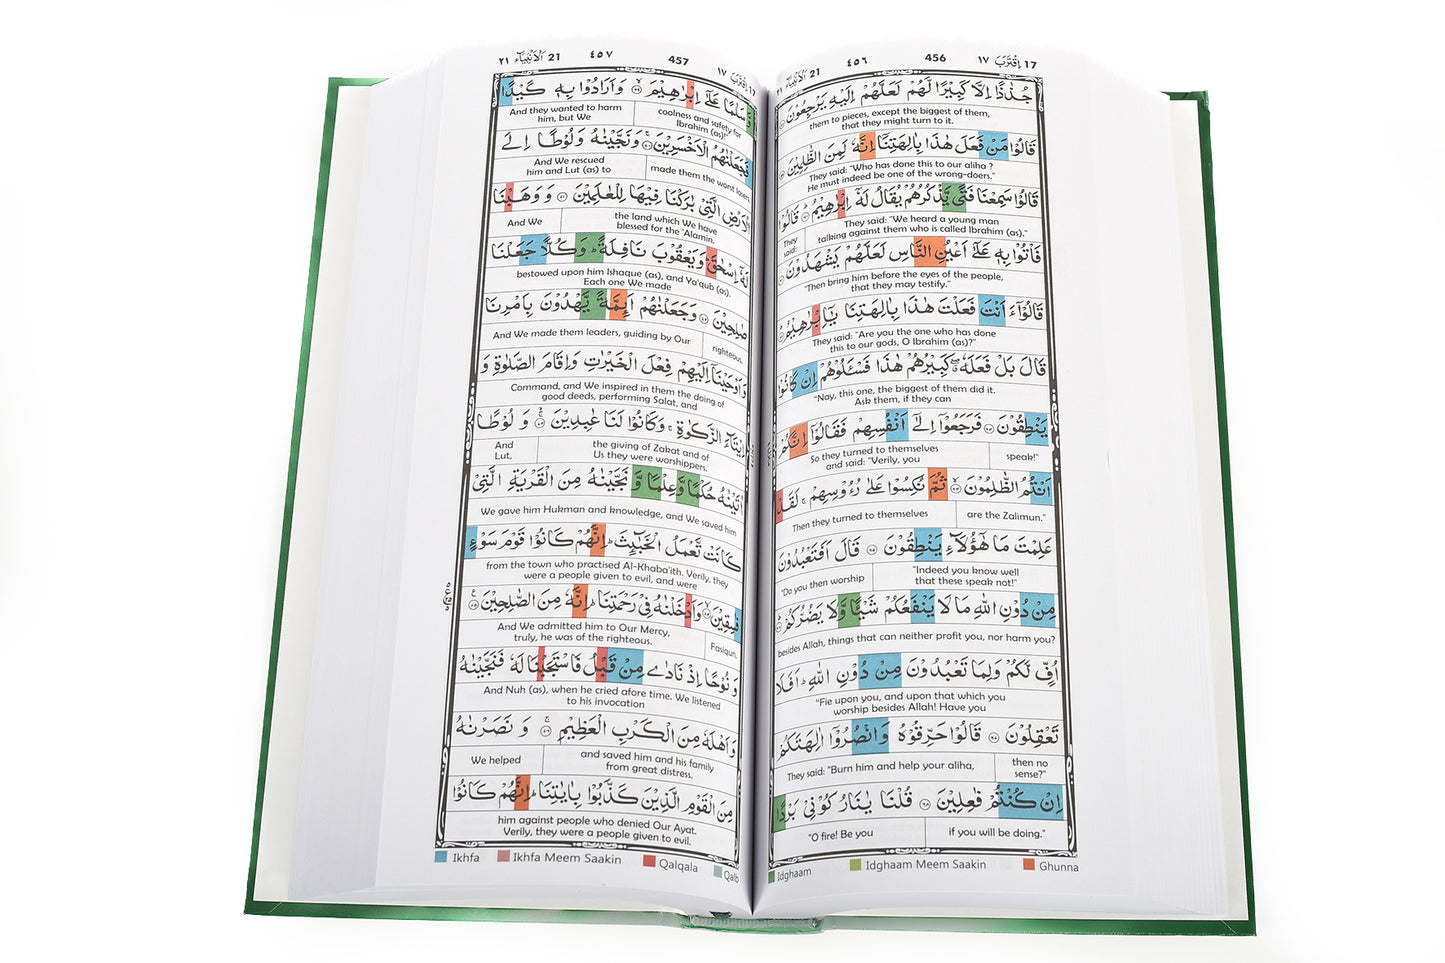 ٢١ اَلْاَنْۢبِيَآء 21
٤٥٦
456
١٧ اِقْتَرَبَ 17
جُذٰذًا اِلَّا كَبِيْرًا لَّهُمْ لَعَلَّهُمْ اِلَيْهِ يَرْجِعُوْنَ
them to pieces, except the biggest of them,
that they might turn to it.
قَالُوْا مَنْ فَعَلَ هٰذَا بِاٰلِهَتِنَاۤ اِنَّهٗ لَمِنَ الظّٰلِمِيْنَ
They said: "Who has done this to our aliha ?
He must indeed be one of the wrong-doers."
قَالُوْا سَمِعْنَا فَتًى يَّذْكُرُهُمْ يُقَالُ لَهٗۤ اِبْرٰهِيْمُ قَالُوْا
They said: "We heard a young man
talking against them who is called Ibrahim (as)."
They
said:
فَاْتُوْا بِهٖ عَلٰۤى اَعْيُنِ النَّاسِ لَعَلَّهُمْ يَشْهَدُوْنَ
"Then bring him before the eyes of the people,
that they may testify."
قَالُوْۤا ءَاَنْتَ فَعَلْتَ هٰذَا بِاٰلِهَتِنَا يٰۤاِبْرٰهِيْمُ
They said: "Are you the one who has done
this to our gods, O Ibrahim (as)?"
قَالَ بَلْ فَعَلَهٗ كَبِيْرُهُمْ هٰذَا فَسْـَٔلُوْهُمْ اِنْ كَانُوْا
"Nay, this one, the biggest of them did it.
Ask them, if they can
يَنْطِقُوْنَ فَرَجَعُوْۤا اِلٰۤى اَنْفُسِهِمْ فَقَالُوْۤا اِنَّكُمْ
speak!"
So they turned to themselves
and said: "Verily, you
اَنْتُمُ الظّٰلِمُوْنَ ثُمَّ نُكِسُوْا عَلٰى رُءُوْسِهِمْ لَقَدْ
are the Zalimun."
Then they turned to themselves
عَلِمْتَ مَا هٰۤؤُلَآءِ يَنْطِقُوْنَ قَالَ اَفَتَعْبُدُوْنَ
"Indeed you know well
that these speak not!"
"Do you then worship
مِنْ دُوْنِ اللّٰهِ مَا لَا يَنْفَعُكُمْ شَيْـًٔا وَّلَا يَضُرُّكُمْ
besides Allah, things that can neither profit you, nor harm you?
اُفٍّ لَّكُمْ وَلِمَا تَعْبُدُوْنَ مِنْ دُوْنِ اللّٰهِ اَفَلَا
"Fie upon you, and upon that which you
worship besides Allah! Have you
تَعْقِلُوْنَ قَالُوْا حَرِّقُوْهُ وَانْصُرُوْۤا اٰلِهَتَكُمْ
then no
sense?"
They said: "Burn him and help your aliha,
اِنْ كُنْتُمْ فٰعِلِيْنَ قُلْنَا يٰنَارُ كُوْنِيْ بَرْدًا
if you will be doing."
"O fire! Be you
Idghaam
Idghaam Meem Saakin
Ghunna
٢١ اَلْاَنْۢبِيَآء 21
٤٥٧
457
١٧ اِقْتَرَبَ 17
وَّسَلٰمًا عَلٰۤى اِبْرٰهِيْمَ وَاَرَادُوْا بِهٖ كَيْدًا
coolness and safety for
Ibrahim (as)!"
And they wanted to harm
him, but We
فَجَعَلْنٰهُمُ الْاَخْسَرِيْنَ وَنَجَّيْنٰهُ وَلُوْطًا اِلَى
made them the worst losers.
And We rescued
him and Lut (as) to
الْاَرْضِ الَّتِيْ بٰرَكْنَا فِيْهَا لِلْعٰلَمِيْنَ وَوَهَبْنَا
the land which We have
blessed for the 'Alamin.
And We
لَهٗۤ اِسْحٰقَ وَيَعْقُوْبَ نَافِلَةً وَكُلًّا جَعَلْنَا
bestowed upon him Ishaque (as), and Ya'qub (as).
Each one We made
صٰلِحِيْنَ وَجَعَلْنٰهُمْ اَئِمَّةً يَّهْدُوْنَ بِاَمْرِنَا
righteous.
And We made them leaders, guiding by Our
وَاَوْحَيْنَاۤ اِلَيْهِمْ فِعْلَ الْخَيْرٰتِ وَاِقَامَ الصَّلٰوةِ وَ
Command, and We inspired in them the doing of
good deeds, performing Salat, and
اِيْتَآءَ الزَّكٰوةِ وَكَانُوْا لَنَا عٰبِدِيْنَ وَ لُوْطًا
the giving of Zakat and of
Us they were worshippers.
And
Lut,
اٰتَيْنٰهُ حُكْمًا وَّعِلْمًا وَّ نَجَّيْنٰهُ مِنَ الْقَرْيَةِ الَّتِيْ
We gave him Hukman and knowledge, and We saved him
كَانَتْ تَّعْمَلُ الْخَبٰٓئِثَ اِنَّهُمْ كَانُوْا قَوْمَ سَوْءٍ
from the town who practised Al-Khaba'ith. Verily, they
were a people given to evil, and were
فٰسِقِيْنَ وَاَدْخَلْنٰهُ فِيْ رَحْمَتِنَا اِنَّهٗ مِنَ الصّٰلِحِيْنَ
Fasiqun.
And We admitted him to Our Mercy,
truly, he was of the righteous.
وَ نُوْحًا اِذْ نَادٰى مِنْ قَبْلُ فَاسْتَجَبْنَا لَهٗ فَنَجَّيْنٰهُ
And Nuh (as), when he cried afore time. We listened
to his invocation
وَاَهْلَهٗ مِنَ الْكَرْبِ الْعَظِيْمِ وَ نَصَرْنٰهُ
and saved him and his family
from great distress.
We helped
مِنَ الْقَوْمِ الَّذِيْنَ كَذَّبُوْا بِاٰيٰتِنَا اِنَّهُمْ كَانُوْا
him against people who denied Our Ayat.
Verily, they were a people given to evil.
Ikhfa
Ikhfa Meem Saakin
Qalqala
Qalb